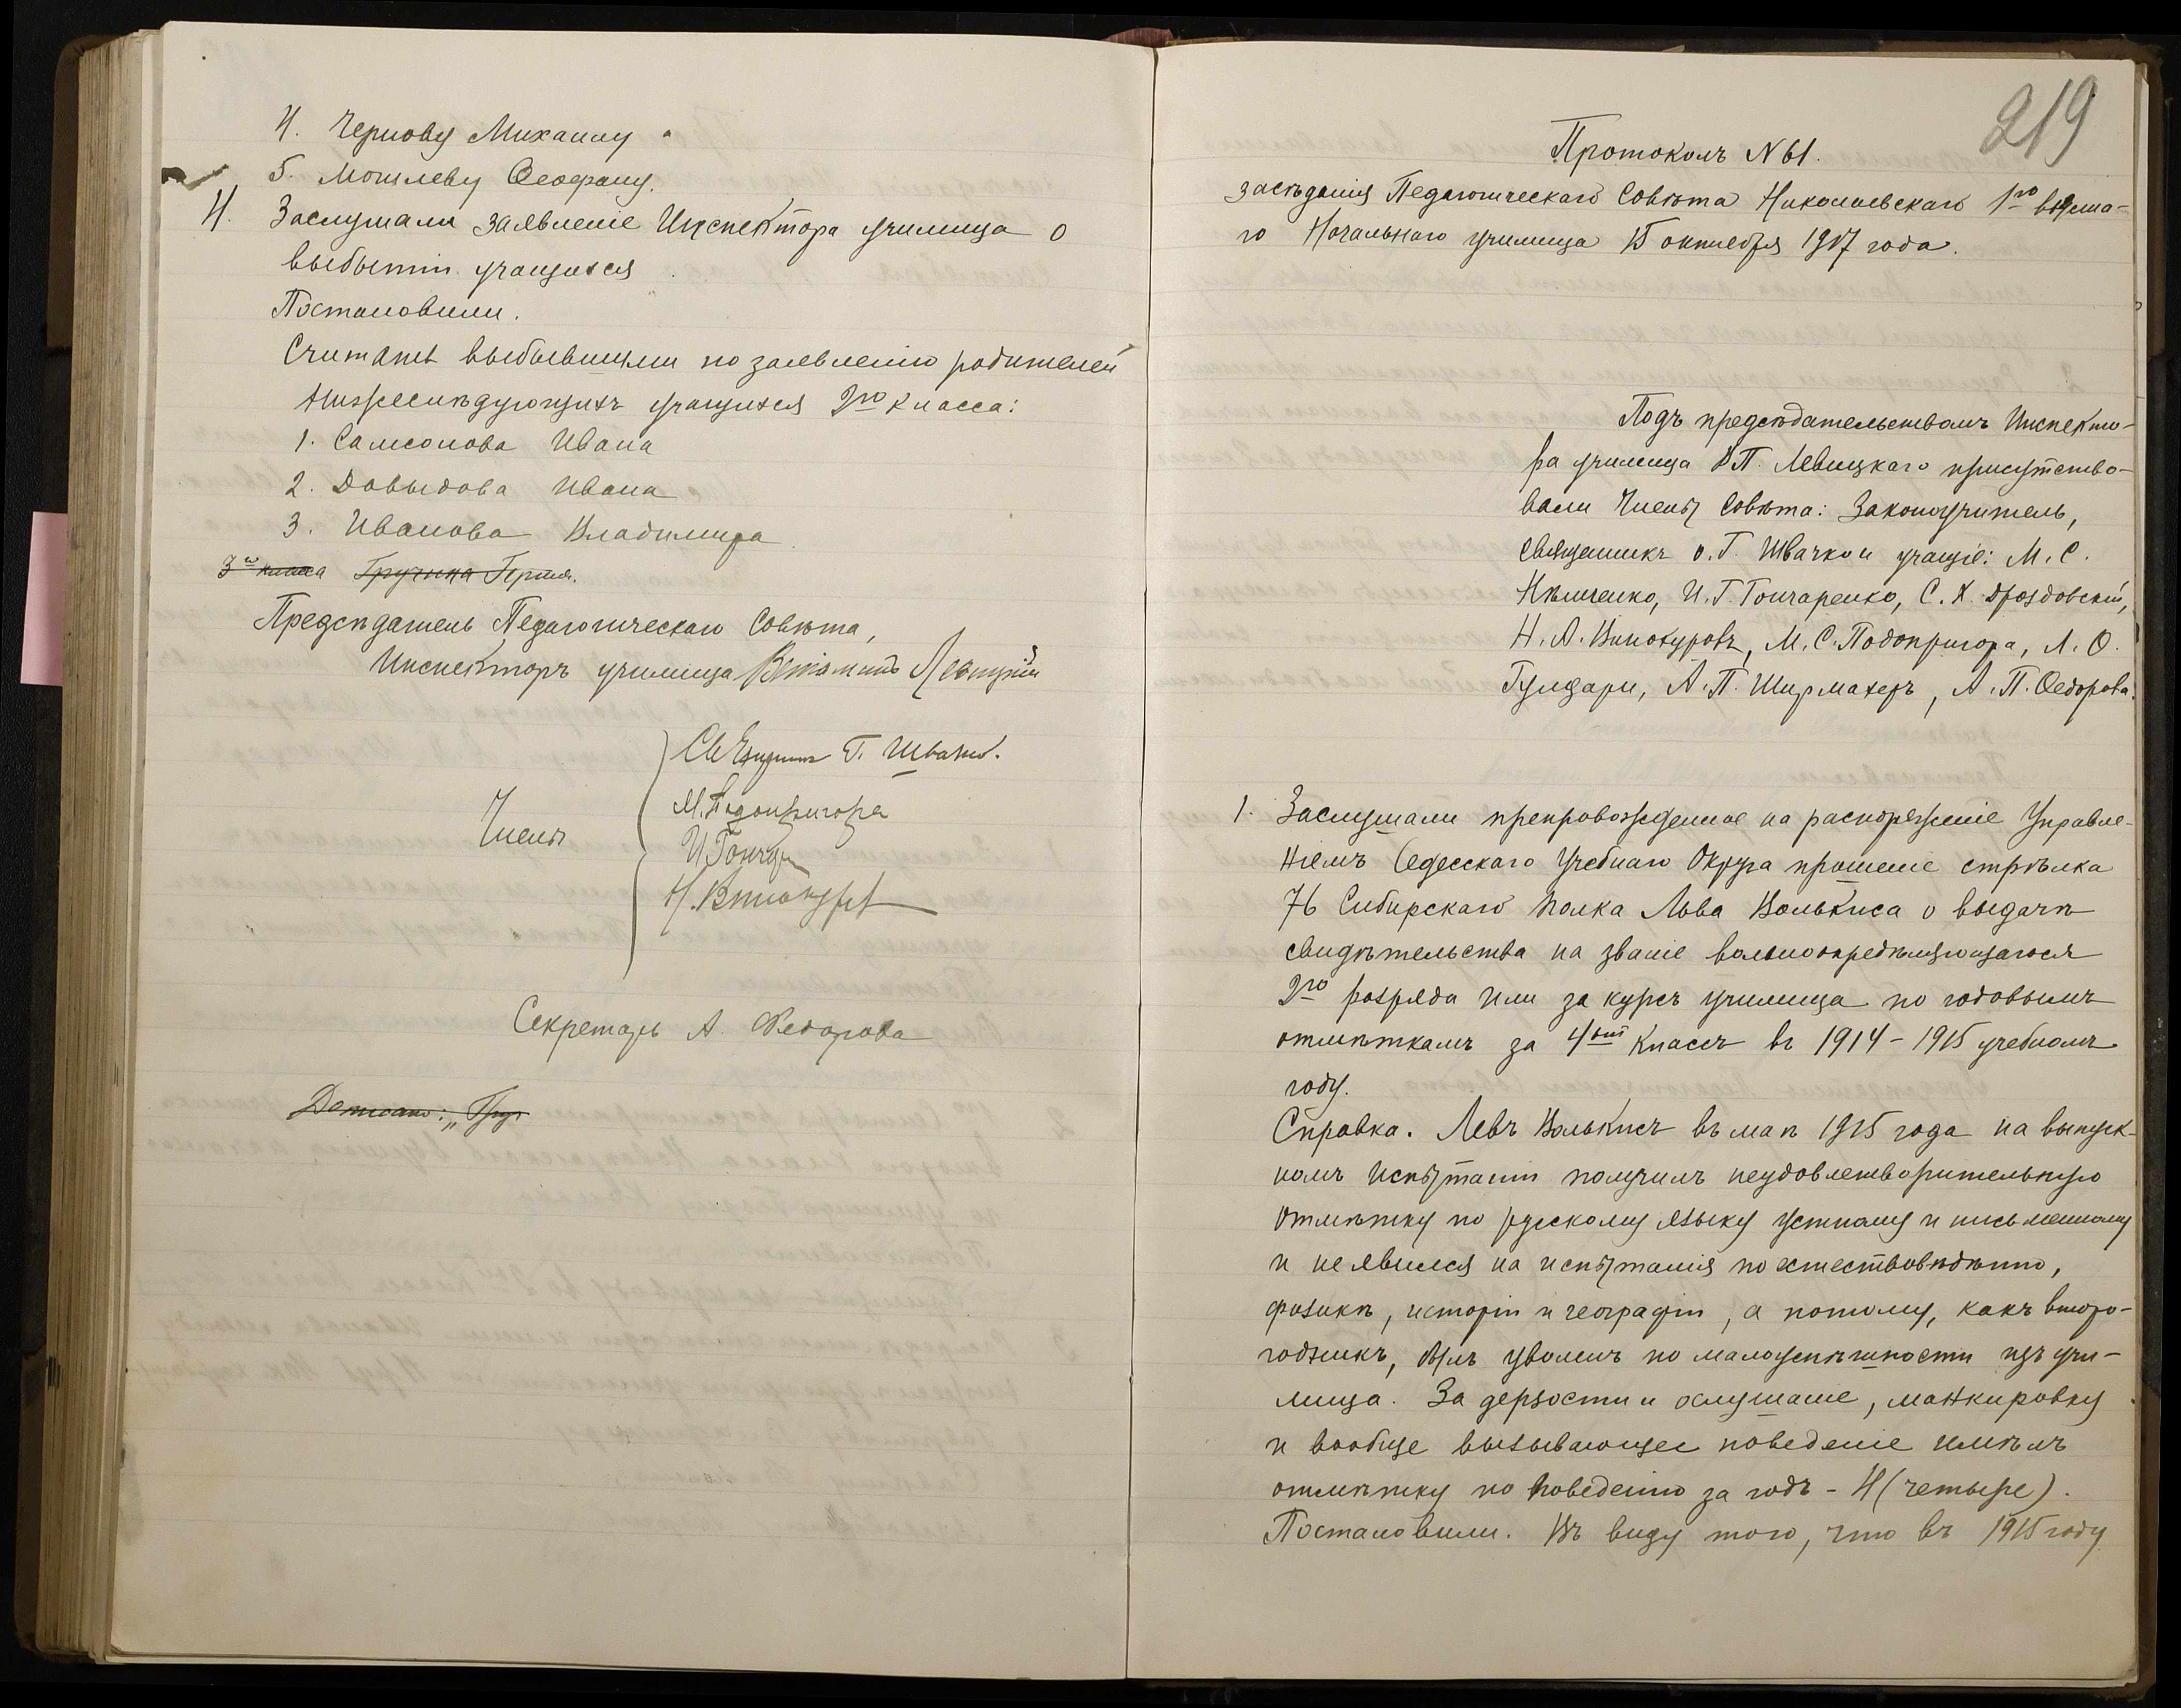 4. Чернову Михаилу "
5. Могилеву Ѳеофану.
4. Заслушали заявленіе Инспектора училища о
выбытіи учащихся.
Постановили.
Считать выбывшими по заявленію родителей
нижеслѣдующихъ учащихся 2го класса:
1. Самсонова Ивана
2. Давыдова Ивана
3. Иванова Владимира
3го класса
Предсѣдатель Педагогическаго Совѣта,
Инспекторъ училища Веніаминъ Левицкій
Свящ Г. Швачко.
М. Подопригора
Члены
И Гончар
Н. Винокуровъ
Секретарь А. Федорова
219
Протоколъ №61.
засѣданія Педагогическаго Совѣта Николаевскаго 1го высша-
го Начальнаго училища 15 октября 1917 года.
Подъ предсѣдательствомъ Инспекто-
ра училища В П. Левицкаго присутство-
вали Члены Совѣта: Законоучитель,
Священникъ о. Г. Швачко и учащіе: М. С.
Нѣмченко, И. Г. Гончаренко, С. Х. Дроздовскій,
Н. А. Винокуровъ, М. С. Подопригора, Л. О.
А. П. Ширмахеръ, А. П. Ѳедорова.
1. Заслушали препровожденное на распоряженіе Управле-
ніемъ Одесскаго Учебнаго Округа прошеніе стрѣлка
76 Сибирскаго полка Льва Волькиса о выдачѣ
свидѣтельства на званіе вольноопредѣляющагося
2го разряда или за курсъ училища по годовымъ
отмѣткамъ за 4ый классъ въ 1914-1915 учебномъ
году.
Справка. Левъ Волькисъ въ маѣ 1915 года на выпуск-
номъ испытаніи получилъ неудовлетворительную
отмѣтку по русскому языку устному и письменному
и не явился на испытанія по естествовѣдѣнію,
физикѣ, исторіи и географіи, а потому, какъ второ-
годникъ, былъ уволенъ по малоуспѣшности изъ учи-
лища. За дерзости и ослушаніе, манкировку
и вообще вызывающее поведеніе имѣлъ
отмѣтку по поведенію за годъ - 4 (четыре).
Постановили. Въ виду того, что въ 1915 году